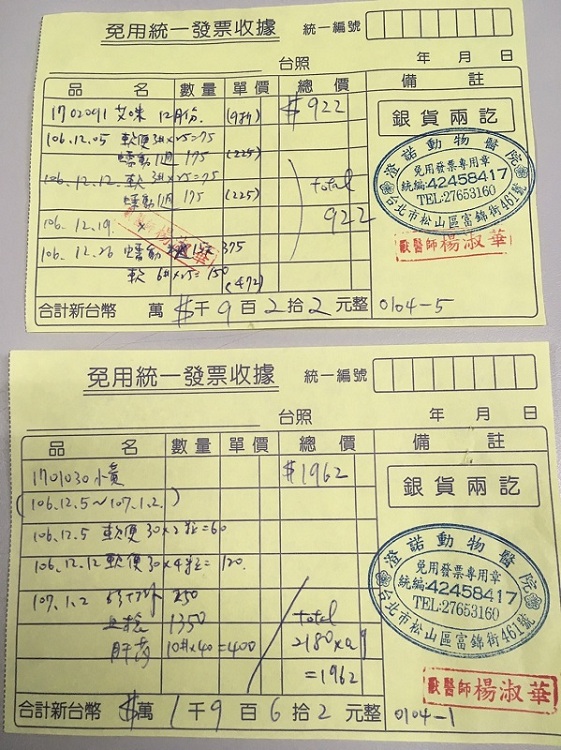 免用統一發票收據 統一編號
台照 年 月 日
品 名 數量 單價 總價 備 註
1702091 艾咪 12月份 (9折) $922
銀貨兩訖
106.12.05 軟便 3#×25=75
蠕動1週 175 (225)
106.12.12 軟 3#×25=75
蠕動1週 175 (225)
total
922
106.12.19
106.12.26 蠕動 15天 375
軟 6#×25=150 (472)
澄諾動物醫院
免用發票專用章
統編:42458417
TEL:27653160
台北市松山區富錦街461號
獸醫師 楊淑華
合計新台幣 萬 $千9百2拾2元整 0104-5
免用統一發票收據 統一編號
台照 年 月 日
品 名 數量 單價 總價 備 註
1701030 小黃 $1962
銀貨兩訖
(106.12.5~107.1.2.)
106.12.5 軟便 30×2粒=60
106.12.12 軟便 30×4粒=120
107.1.2 250
血檢 1350
total
2180×0.9
=1962
10#×40=400
澄諾動物醫院
免用發票專用章
統編:42458417
TEL:27653160
台北市松山區富錦街461號
獸醫師 楊淑華
合計新台幣 $萬1千9百6拾2元整 0104-1